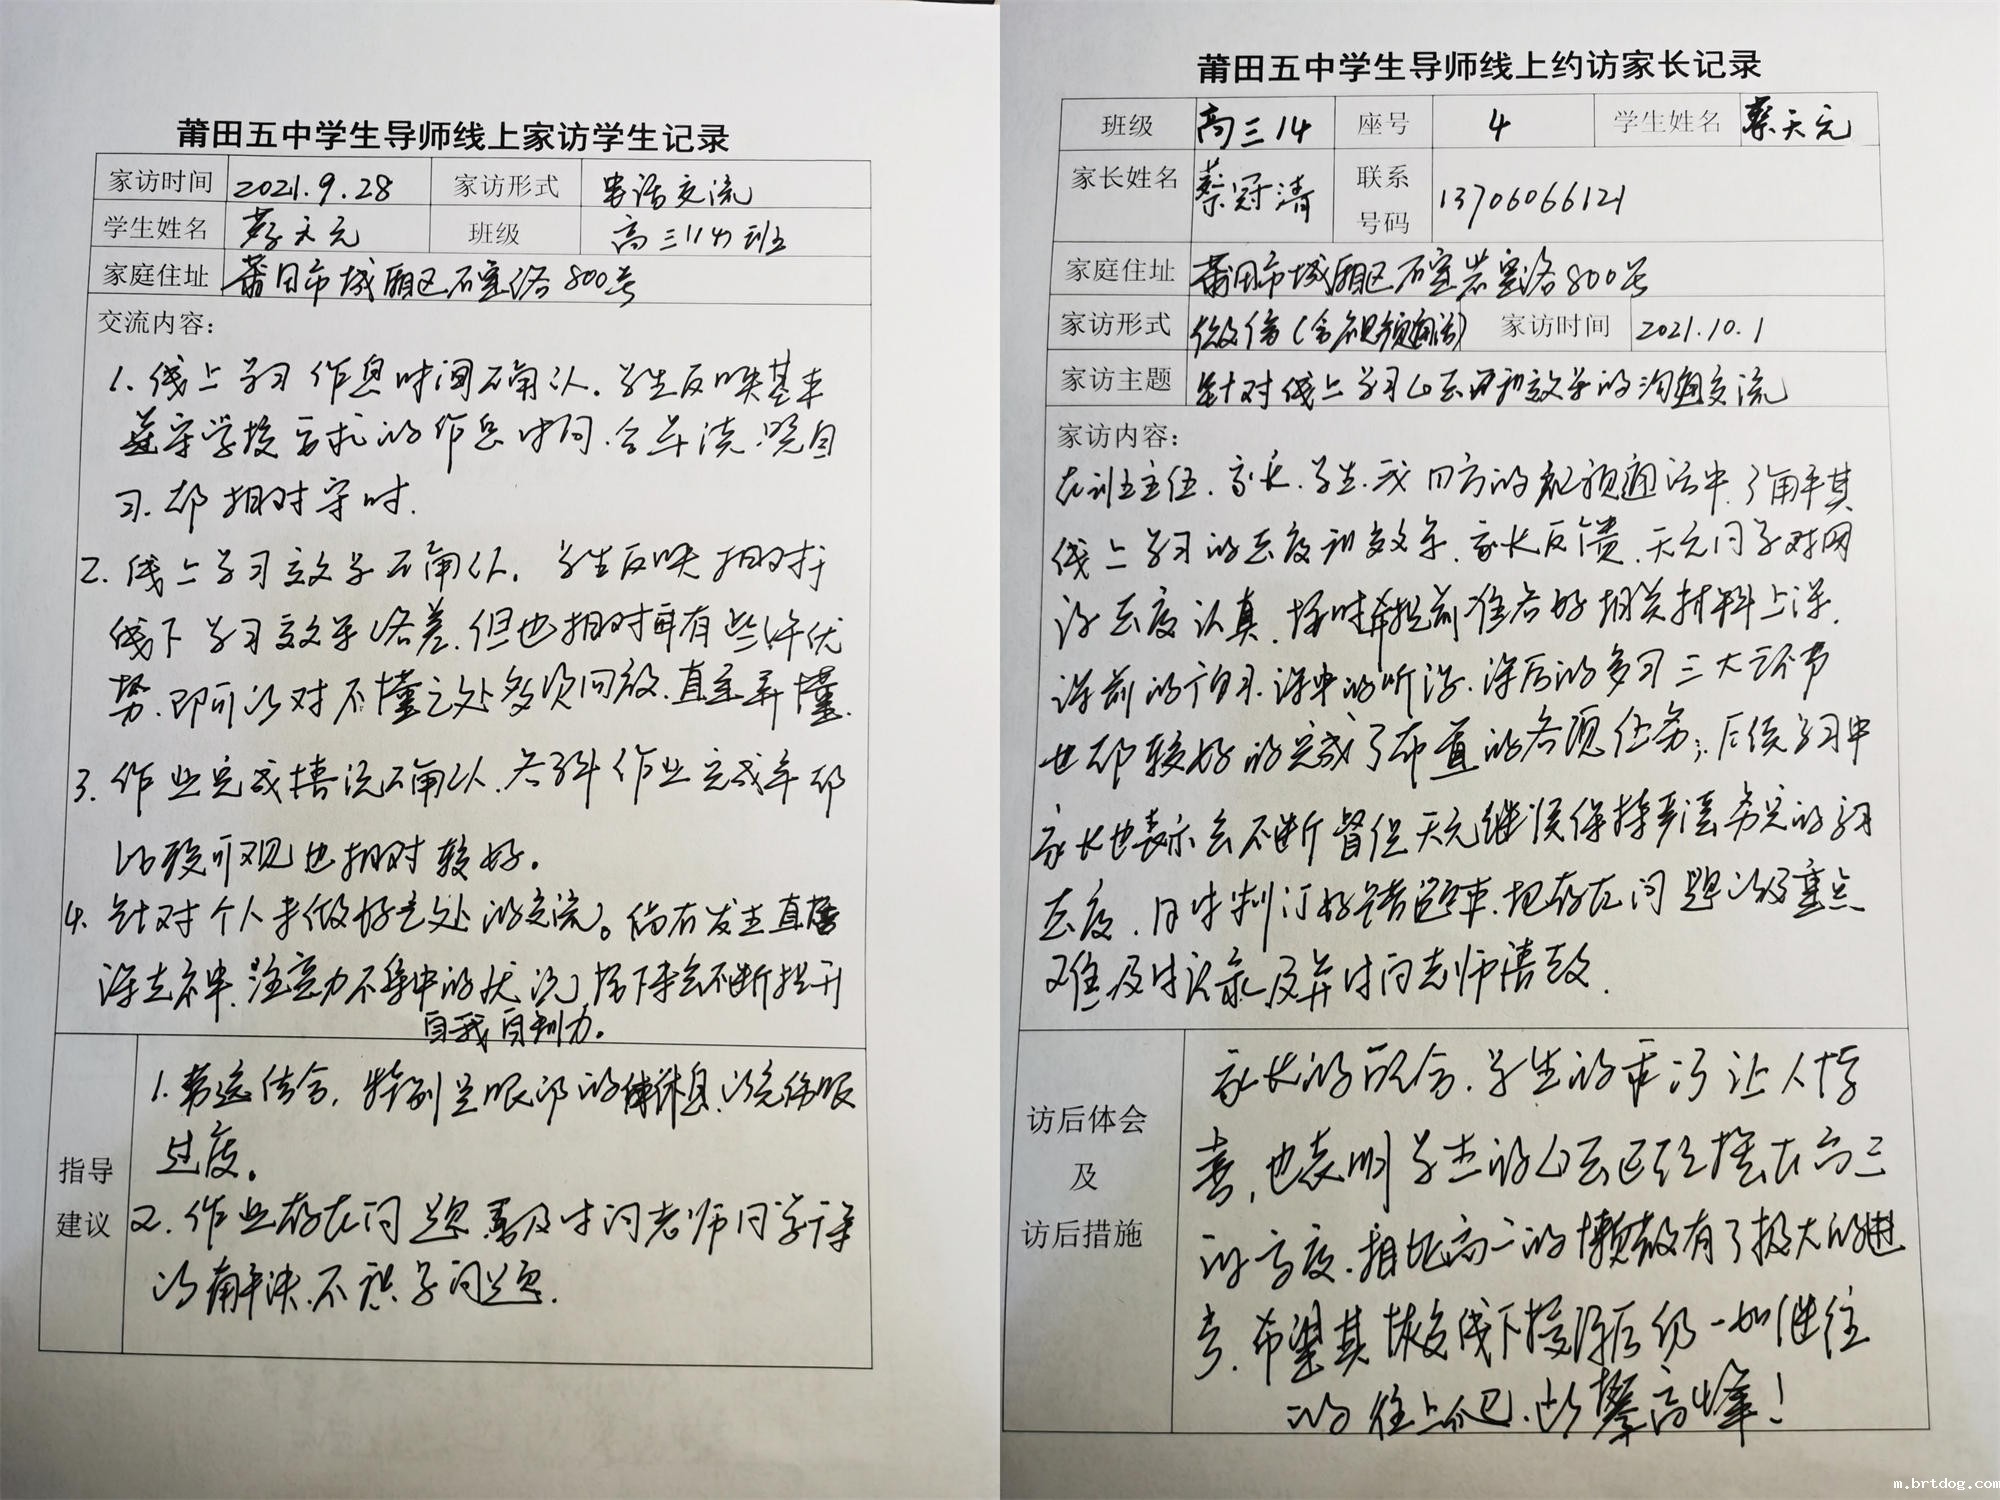 莆田五中学生导师线上家访学生记录
家访时间 2021.9.28 家访形式 电话交流
学生姓名 蔡天元 班级 高三(14)班
家庭住址 莆田市城厢区石室路800号
交流内容：
1. 线上学习作息时间确认. 学生反映基本
遵守学校安排的作息时间.含早读.晚自
习.都相对守时.
2. 线上学习效率确认. 学生反映相对于
线下学习效率略差.但也相对拥有些许优
势.即可以对不懂之处多次回放.直至弄懂.
3. 作业完成情况确认.各科作业完成率都
比较可观也相对较好。
4. 针对个人未做好之处的交流。偶有发生直播
课走神.注意力不集中的状况,接下来会不断提升
自我自制力。
指导建议
1. 劳逸结合, 特别是眼部的休息,以免伤眼
过度。
2. 作业存在问题要及时问老师同学
以解决.不积学问题.
莆田五中学生导师线上约访家长记录
班级 高三14 座号 4 学生姓名 蔡天元
家长姓名 蔡冠清 联系号码 13706066121
家庭住址 莆田市城厢区石室岩室路800号
家访形式 微信(含视频通话) 家访时间 2021.10.1
家访主题 针对线上学习心态和效率的沟通交流
家访内容：
在班主任.家长.学生.我四方的视频通话中.了解其
线上学习的态度和效率.家长反馈.天元同学对网
课态度认真.按时并提前准备好相关材料上课.
课前的预习.课中的听课.课后的复习三大环节
也都较好的完成了布置的各项任务;后续学习中
家长也表示会不断督促天元继续保持严谨务实的学习
态度.同时制订好错题本.把存在问题以及重点
难点及时记录及并时问老师请教.
访后体会及访后措施
家长的配合.学生的乖巧让人惊
喜,也表明学生的心态已经摆在高三
的高度.相比高二的懒散有了极大的进
步.希望其恢复线下授课后仍一如既往
的往上爬.以攀高峰!
m.brtdog.com